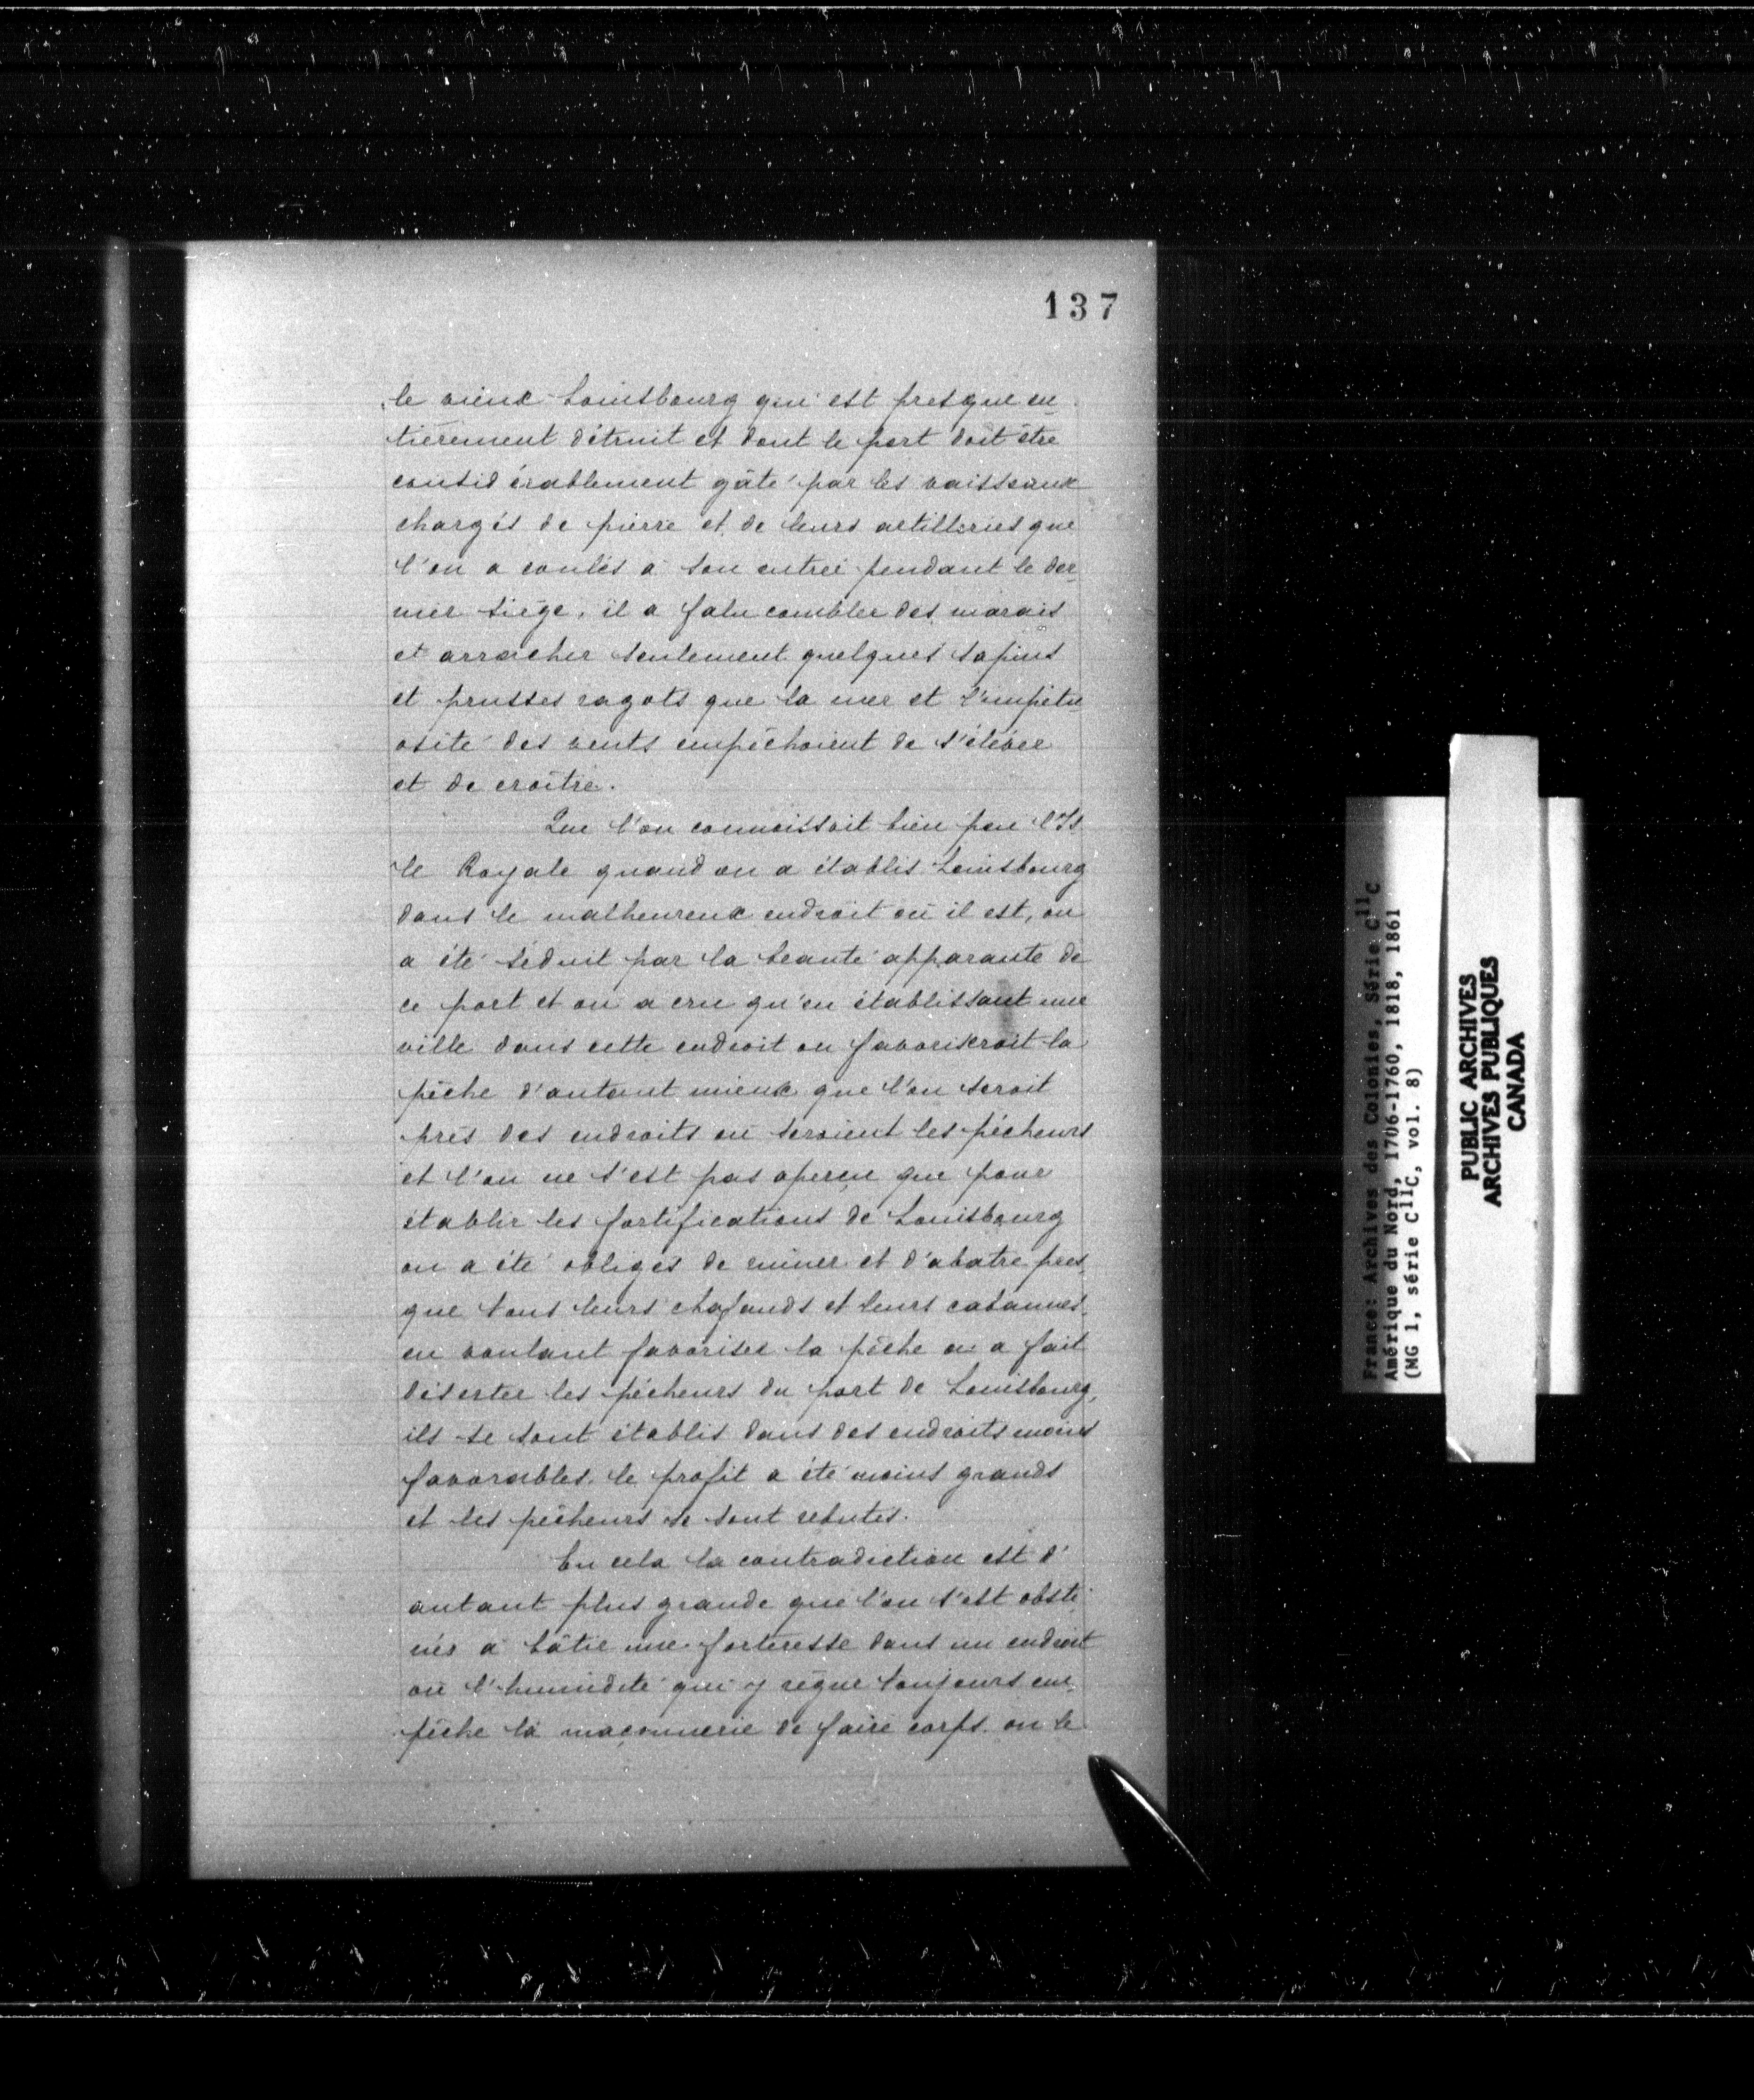 137
le vieux Louisbourg qui est presque en
tièrement détruit et dont le port doit être
considérablement gâté par les vaisseaux
chargés de pierre et de leurs artilleries que
l'on a coulés à son entrée pendant le der
nier siège, il a falu combler des marais
et arracher seulement quelques sapins
et prusses ragots que la mer et l'impétu
osité des vents empêchoient de s'élever
et de croître.
Que l'on connoissoit bien peu l'Is
le Royale quand on a établis Louisbourg
dans le malheureux endroit où il est, on
a été séduit par la beauté apparante de
ce port et on a cru qu'en établissant une
ville dans cette endroit on favoriseroit la
pêche d'autant mieux que l'on seroit
près des endroits où seroient les pêcheurs
et l'on ne s'est pas aperçu que pour
établir les fortifications de Louisbourg
on a été obligés de ruiner et d'abatre pres
que tous leurs chafauds et leurs cabannes,
en voulant favoriser la pêche on a fait
déserter les pêcheurs du port de Louisbourg,
ils se sont établis dans des endroits moins
favorables, le profit a été moins grands
et les pêcheurs se sont rebutés.
En cela la contradiction est d'
autant plus grande que l'on s'est obsti
nés à bâtir une forteresse dans un endroit
où l'humidité qui y règne toujours em
pêche la maçonnerie de faire corps. on le
France: Archives des Colonies, Série C11C
Amérique du Nord, 1706-1760, 1818, 1861
(MG 1, série C11C, vol. 8)
PUBLIC ARCHIVES
ARCHIVES PUBLIQUES
CANADA